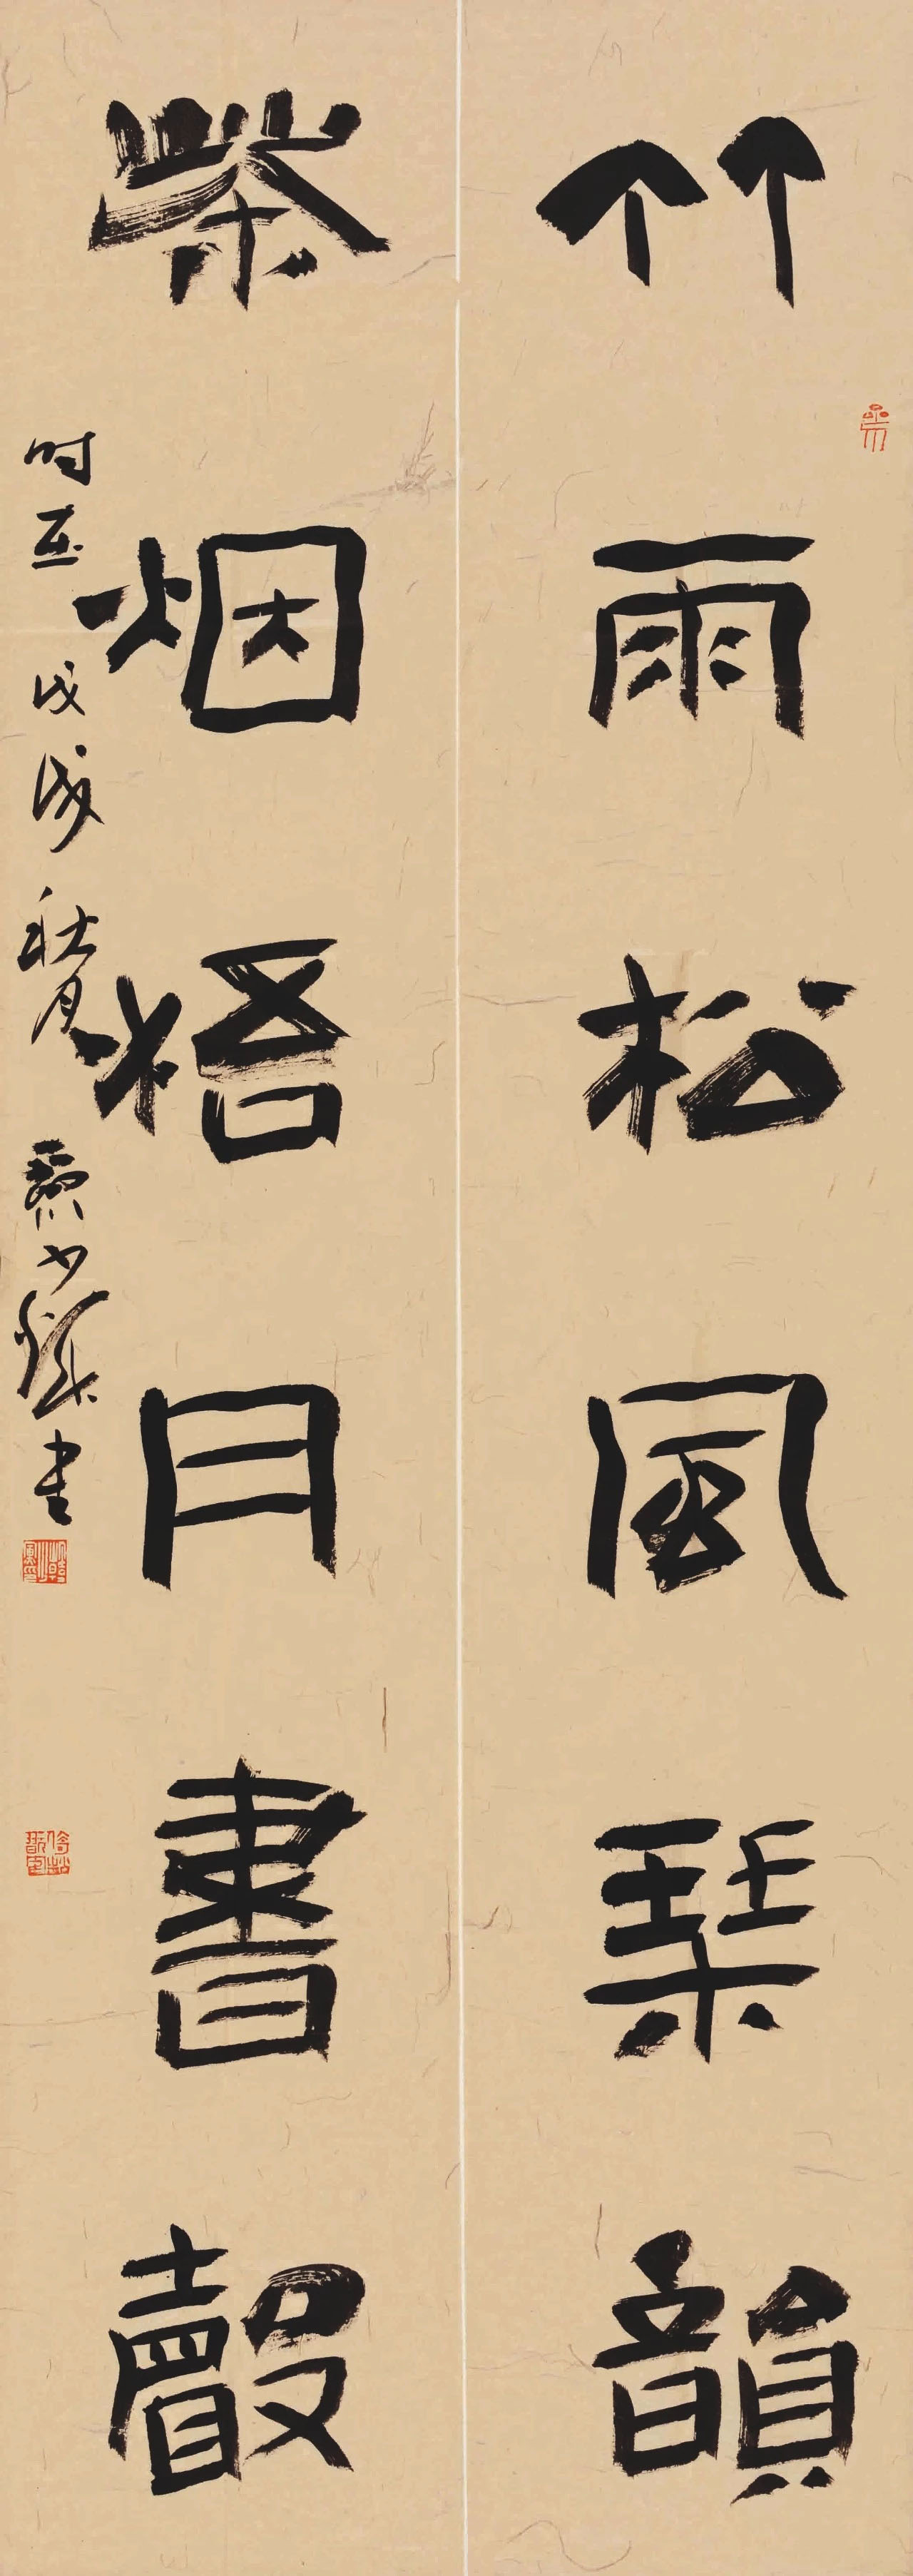 竹雨松風琹韻
茶烟梧月書聲
时在戊戌秋月
书